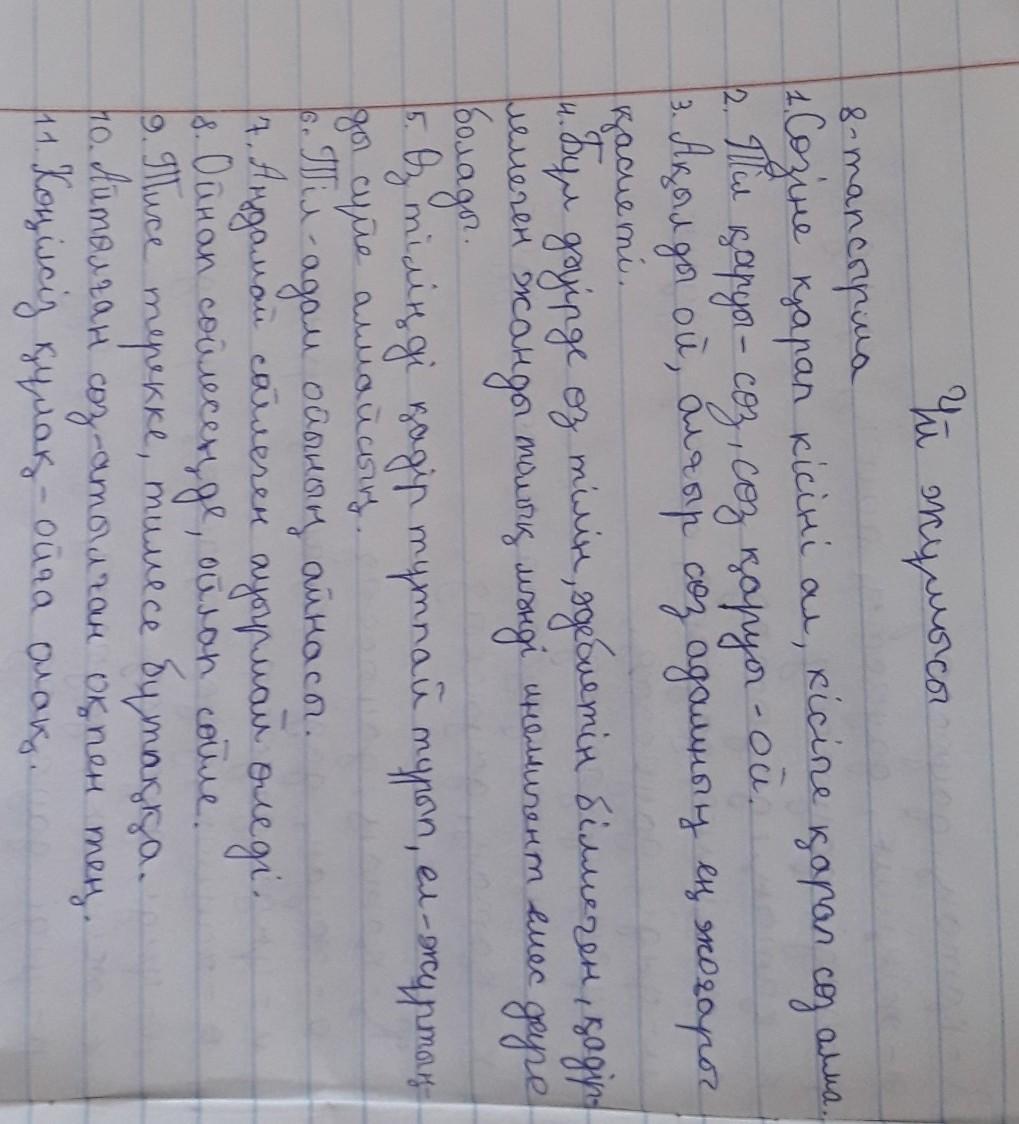 Үй жұмысы
8-тапсырма
1. Сөзіне қарап кісіні ал, кісіге қарап сөз алма.
2. Тіл қаруы - сөз, сөз қаруы - ой.
3. Ақылды ой, алғыр сөз адамның ең жоғары
қасиеті.
4. Бұл дәуірде өз тілін, әдебиетін білмеген, қадір-
лемеген жанды толық мәнді интеллигент емес деуге
болады.
5. Өз тіліңді қадір тұтпай тұрып, ел-жұртың-
ды сүйе алмайсың.
6. Тіл - адам ойының айнасы.
7. Аңдамай сөйлеген ауырмай өледі.
8. Ойнап сөйлесеңде, ойлап сөйле.
9. Тисе терекке, тимесе бұтаққа.
10. Айтылған сөз - атылған оқпен тең.
11. Көңілсіз құлақ - ойға олақ.